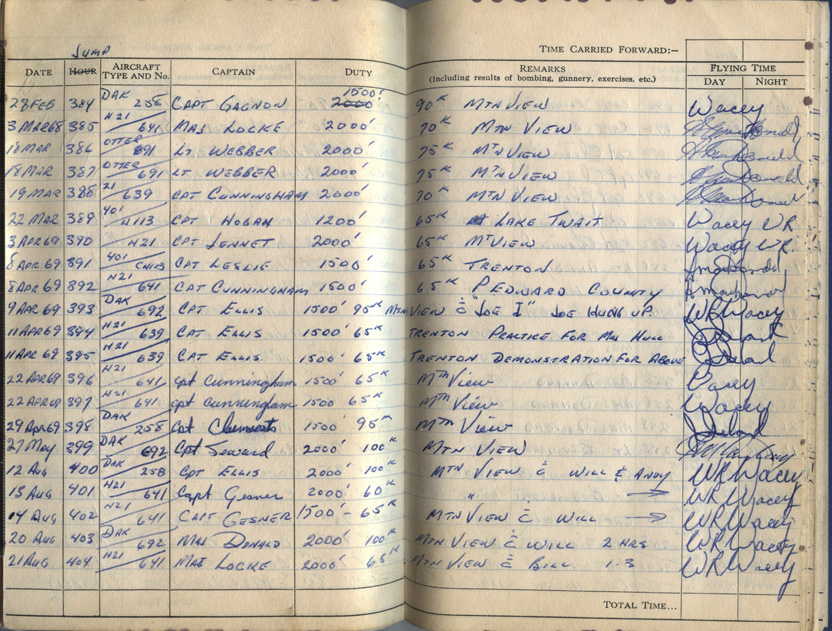 TIME CARRIED FORWARD:—
JUMP
DATE HOUR AIRCRAFT TYPE AND No. CAPTAIN DUTY REMARKS (Including results of bombing, gunnery, exercises, etc.) FLYING TIME DAY NIGHT
28 FEB 384 DAK 258 CAPT GAGNON 2000' 1500' 90K MTN VIEW Wacey
3 MAR 68 385 H21 641 MAJ LOCKE 2000' 70K MTN VIEW
18 MAR 386 OTTER 691 LT WEBBER 2000' 75K MTN VIEW
18 MAR 387 OTTER 691 LT WEBBER 2000' 75K MTN VIEW
19 MAR 388 21 639 CPT CUNNINGHAM 2000' 70K MTN VIEW
22 MAR 389 401 4113 CPT HOGAN 1200' 65K LAKE TWAIT Wacey WR
3 APR 69 390 H21 CPT LENNET 2000' 65K MT VIEW Wacey WR
8 APR 69 391 401 CH113 CPT LESLIE 1500' 65K TRENTON
8 APR 69 392 H21 641 CAPT CUNNINGHAM 1500' 65K P EDWARD COUNTY
9 APR 69 393 DAK 692 CPT ELLIS 1500' 95K MTN VIEW C̄ "JOE I" JOE HUNG UP. WRWacey
11 APR 69 394 H21 639 CPT ELLIS 1500' 65K TRENTON PRACTICE FOR MIN HULL
11 APR 69 395 H21 639 CAPT ELLIS 1500' 65K TRENTON DEMONSTRATION FOR ABOVE
22 APR 69 396 H21 641 cpt Cunningham 1500' 65K Mtn View Wacey
22 APR 69 397 H21 641 cpt cunningham 1500 65K Mtn View Wacey
29 Apr 69 398 DAK 258 Cpt Clements 1500' 95K Mtn View
27 May 399 DAK 692 Cpt Seward 2000' 100K MTN VIEW
12 Aug 400 DAK 258 Cpt ELLIS 2000' 100K MTN VIEW C̄ WILL & ANDY WRWacey
13 Aug 401 H21 641 Capt Gesner 2000' 60K " → WRWacey
14 Aug 402 H21 641 CAPT GESNER 1500' 65K MTN VIEW C̄ WILL → WRWacey
20 AUG 403 DAK 692 MAJ DONALD 2000' 100K MTN VIEW C̄ WILL 2 HRS WRWacey
21 AUG 404 H21 641 MAJ LOCKE 2000' 65K MTN VIEW C̄ BILL 1.3 WRWacey
TOTAL TIME...